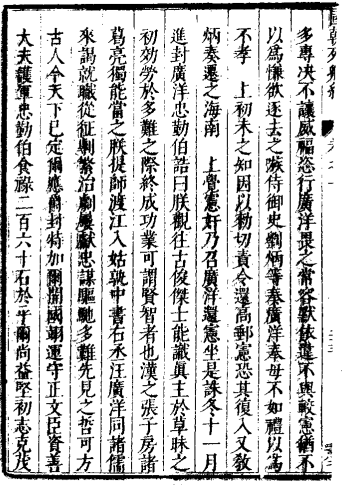 多專决不讓威福恣行廣洋畏之常容默依違不與較憲猶不
以為慊欲逐去之嗾侍御史劉炳等奏廣洋奉母不如禮以為
不孝　上初未之知因以勑切責令還高郵憲恐其復入又敎
炳奏遷之海南　上覺憲奸乃召廣洋還憲坐是誅冬十一月
進封廣洋忠勤伯誥曰朕觀往古俊傑士能識真主於草昧之
初効勞於多難之際終成功業可謂賢智者也漢之張子房諸
葛亮獨能當之朕提師渡江入姑孰中書右丞汪廣洋同諸儒
來謁就職從征剸繁治劇屢獻忠謀驅馳多難先見之哲可方
古人今天下已定爾應爵封特加爾開國翊運守正文臣資善
大夫護軍忠勤伯食祿二百六十石於乎爾尚益堅初志克茂